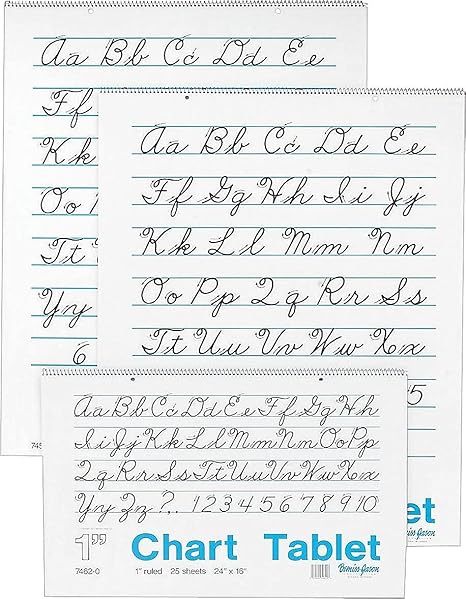 Aa Bb Cc Dd Ee
Ff
Kk
Oo
Tt
Yy
6
745
Aa Bb Cc Dd Ee
Ff Gg Hh Ii Jj
Kk Ll Mm Nn
Oo Pp Qq Rr Ss
Tt Uu Vv Ww Xx
5
Tablet
Aa Bb Cc Dd Ee Ff Gg Hh
Ii Jj Kk Ll Mm Nn Oo Pp
Qq Rr Ss Tt Uu Vv Ww Xx
Yy Zz ? . , 1 2 3 4 5 6 7 8 9 10
1” Chart Tablet
7462-0 1” ruled 25 sheets 24” x 16”